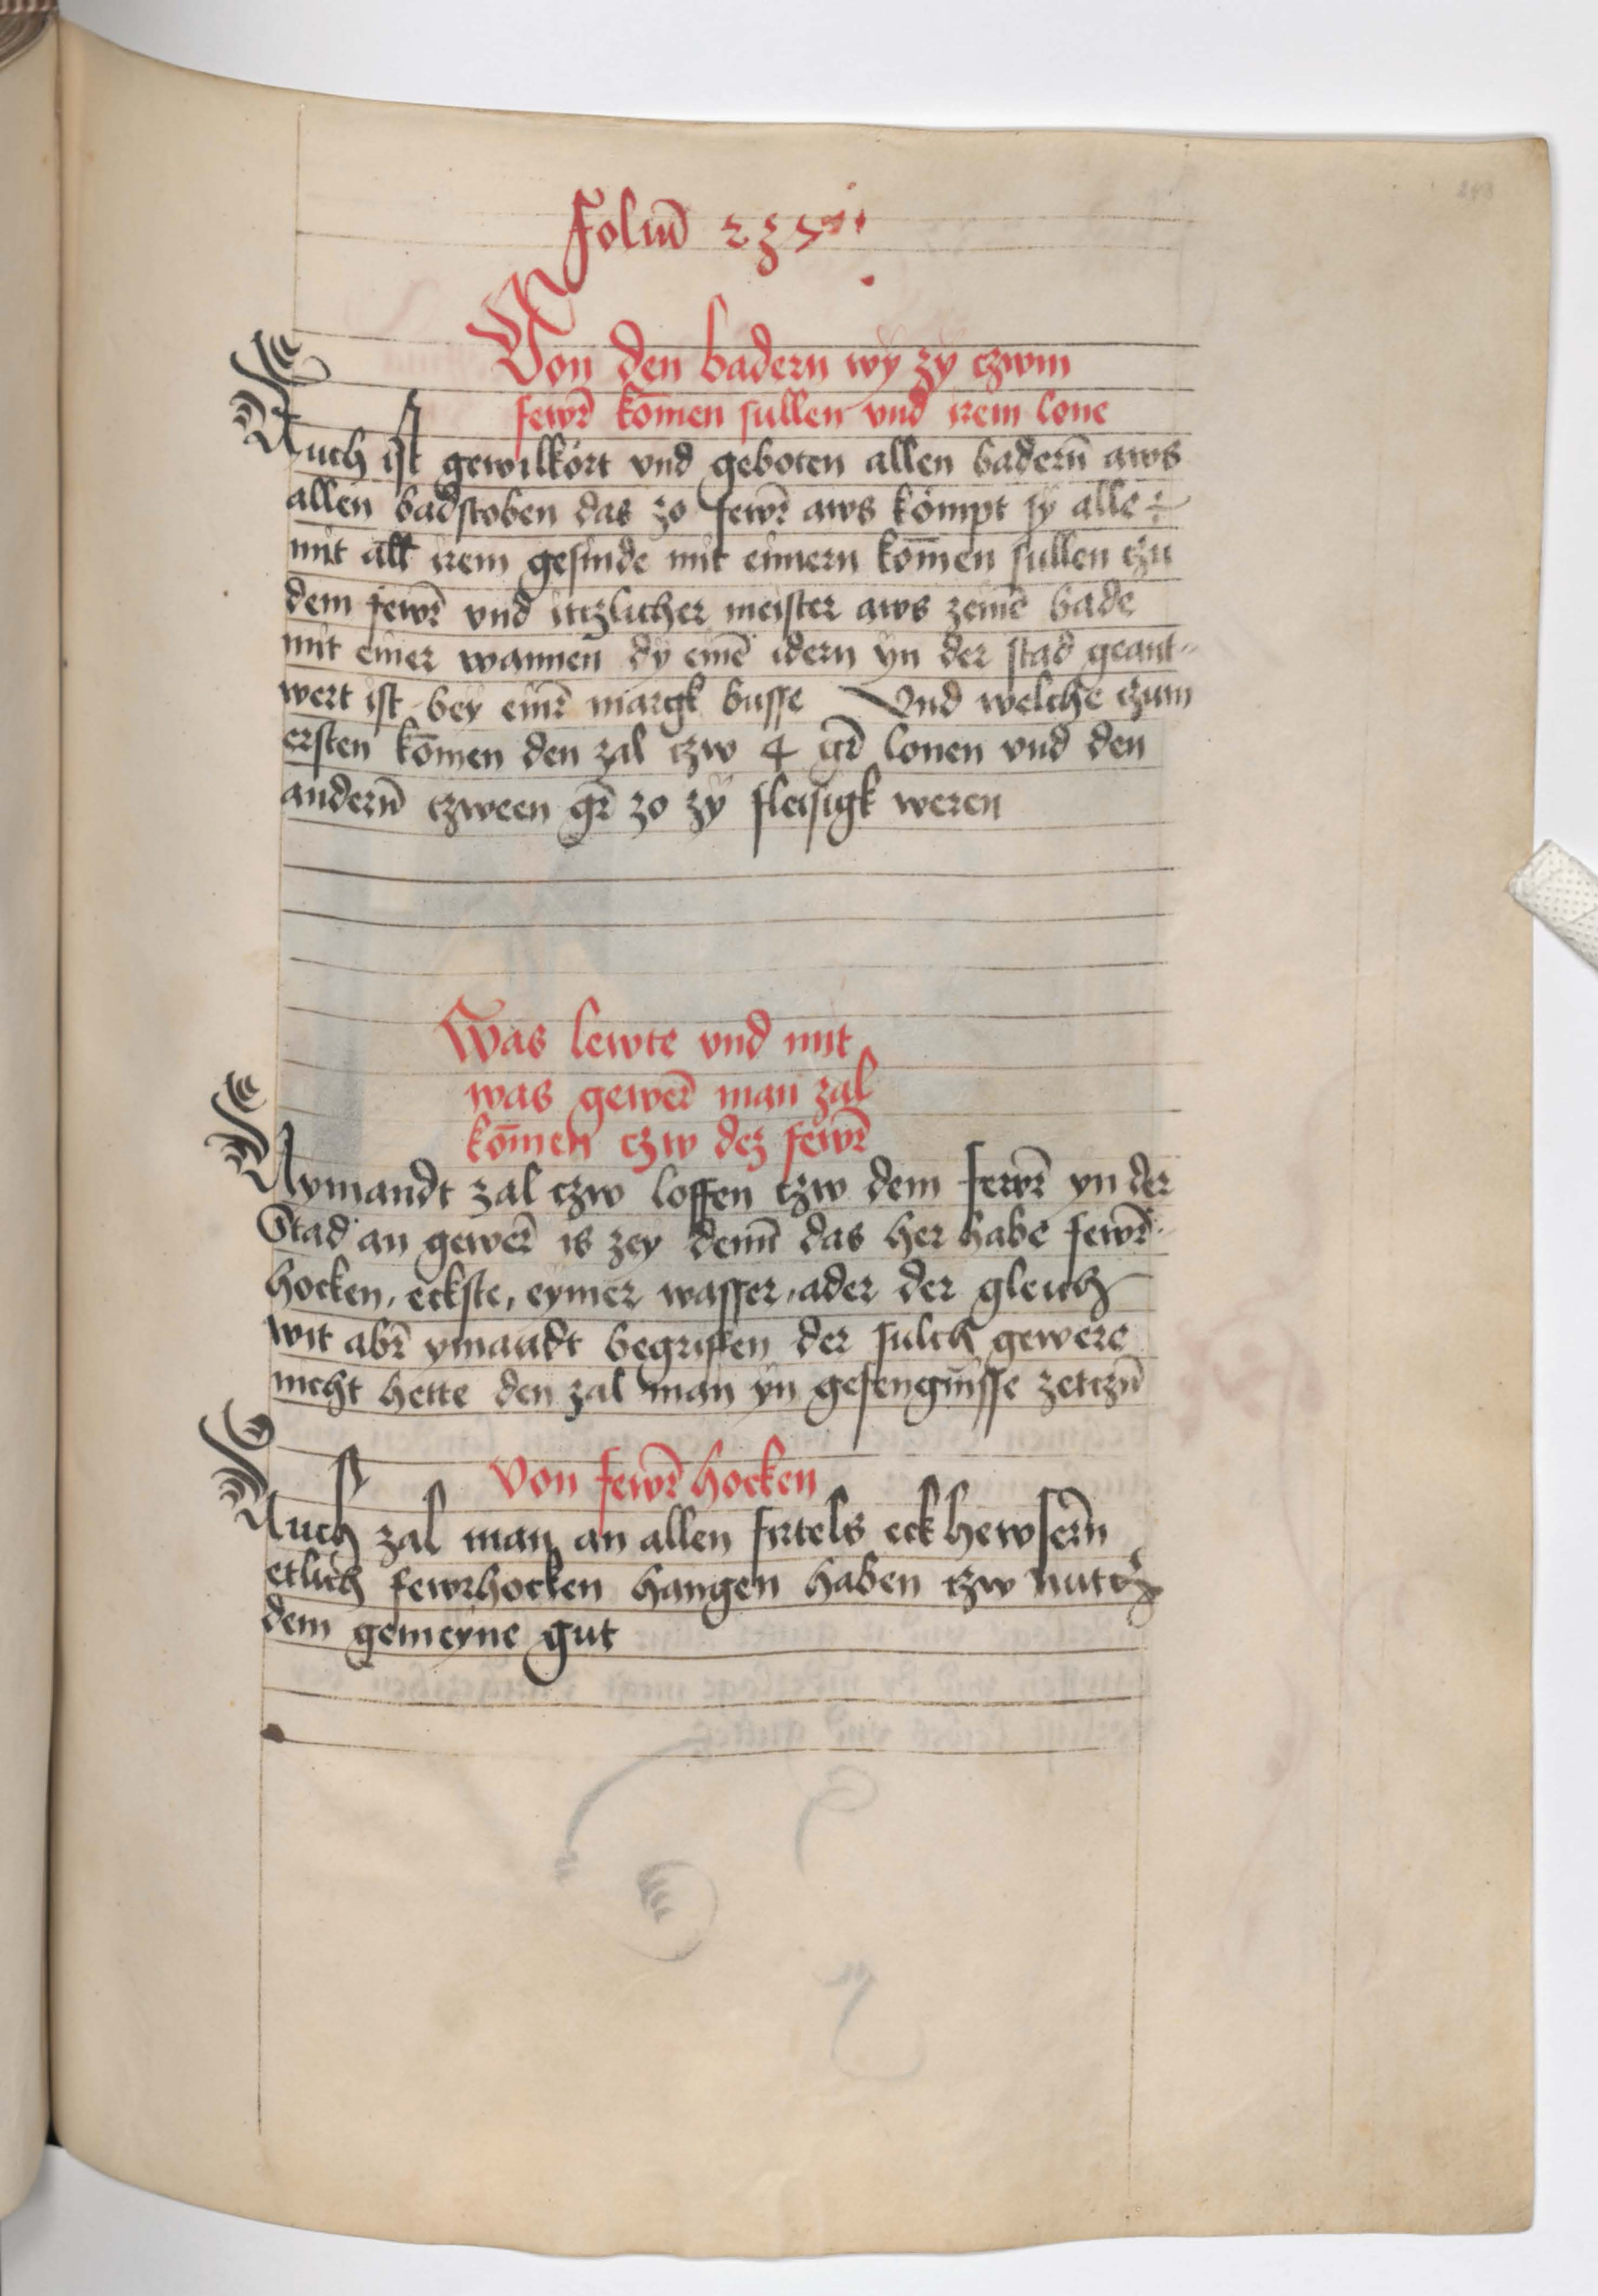 Foliū
Von den badern wÿ zÿ czwm
fewr̄ kōmen sullen vnd irem lone
Auch ist gewilkört vnd geboten allen badern̄ aws
allen badstoben das zo fewr̄ aws kömpt sÿ alle
mit all irem gesinde mit eimern kōmen sullen czu
dem fewr̄ vnd itczlicher meister aws zeinē bade
mit einer wannen dÿ einē idern yn der stad geant-
wert ist bey einr̄ margk busse Vnd welche czum
ersten kōmen den zal czw 4 gr̄ lonen vnd den
andern̄ czween gr̄ zo zÿ fleisigk weren
Was lewte vnd mit
was gewer̄ man zal
kōmen czw dez fewr̄
Nymandt zal czw loffen czw dem fewr̄ yn der
Stad an gewer̄ is zey denn̄ das her habe fewr̄-
hocken, eckste, eymer wasser, ader der gleich
wit abr̄ ymandt begriffen der sulch gewere
nicht hette den zal man yn gefengnisse zetczn̄
Von fewr̄ hocken
Auch zal man an allen firtels eck hewsern̄
etlich fewrhocken hangen haben czw nutcz
dem gemeyne gut